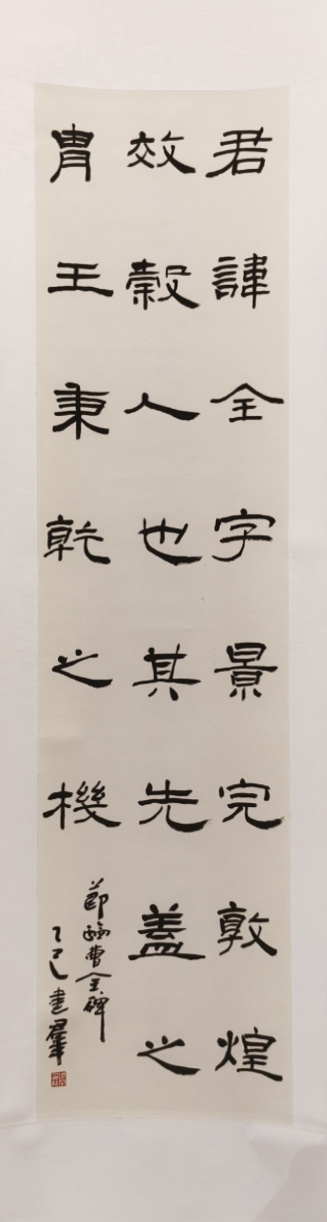 君諱全字景完敦煌
效穀人也其先蓋之
胄王秉乾之機
節臨曹全碑
乙巳建群